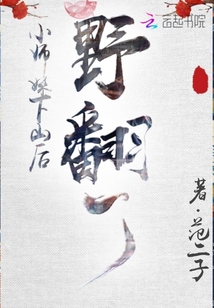 云起书院
小师妹下山后
野翻了
著·范二子